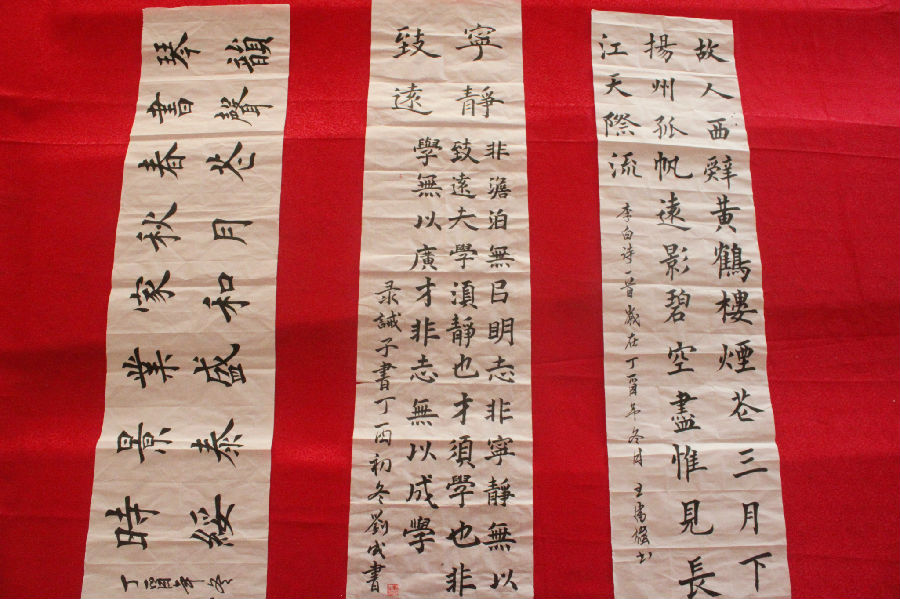 故人西辭黃鶴樓煙花三月下
揚州孤帆遠影碧空盡惟見長
江天際流
李白诗一首歲在丁酉年冬月 王书
寧靜
致遠
非澹泊無以明志非寧靜無以
致遠夫學須靜也才須學也非
學無以廣才非志無以成學
录誡子書丁酉初冬劉成書
韻聲花月和盛泰綏
琴書春秋家業景時
丁酉年冬